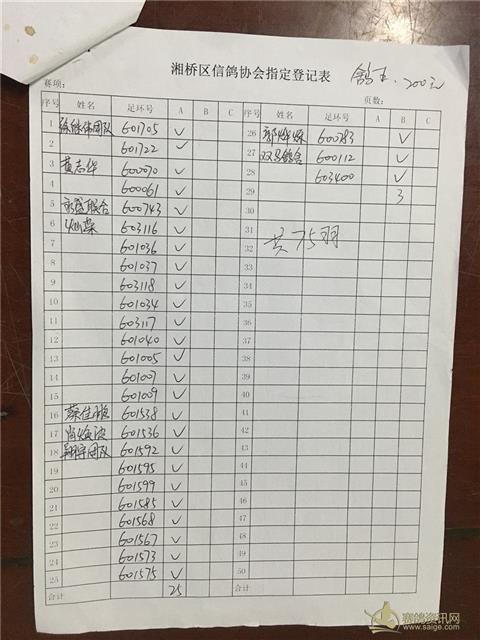 湘桥区信鸽协会指定登记表 鸽王.200元
赛项： 页数：
序号 姓名 足环号 A B C 序号 姓名 足环号 A B C
1 徐继伟团队 601705 ✓ 26 600783 ✓
2 601722 ✓ 27 600112 ✓
3 黄志华 600070 ✓ 28 603400 ✓
4 600061 ✓ 29 3
5 永盛联合 600743 ✓ 30
6 603116 ✓ 31
7 601036 ✓ 32 共75羽
8 601037 ✓ 33
9 603118 ✓ 34
10 601034 ✓ 35
11 603117 ✓ 36
12 601040 ✓ 37
13 601005 ✓ 38
14 601007 ✓ 39
15 601009 ✓ 40
16 601538 ✓ 41
17 601536 ✓ 42
18 翔宇团队 601592 ✓ 43
19 601595 ✓ 44
20 601599 ✓ 45
21 601585 ✓ 46
22 601568 ✓ 47
23 601567 ✓ 48
24 601573 ✓ 49
25 601575 ✓ 50
合计 25 合计
赛鸽资讯网
www.saige.com